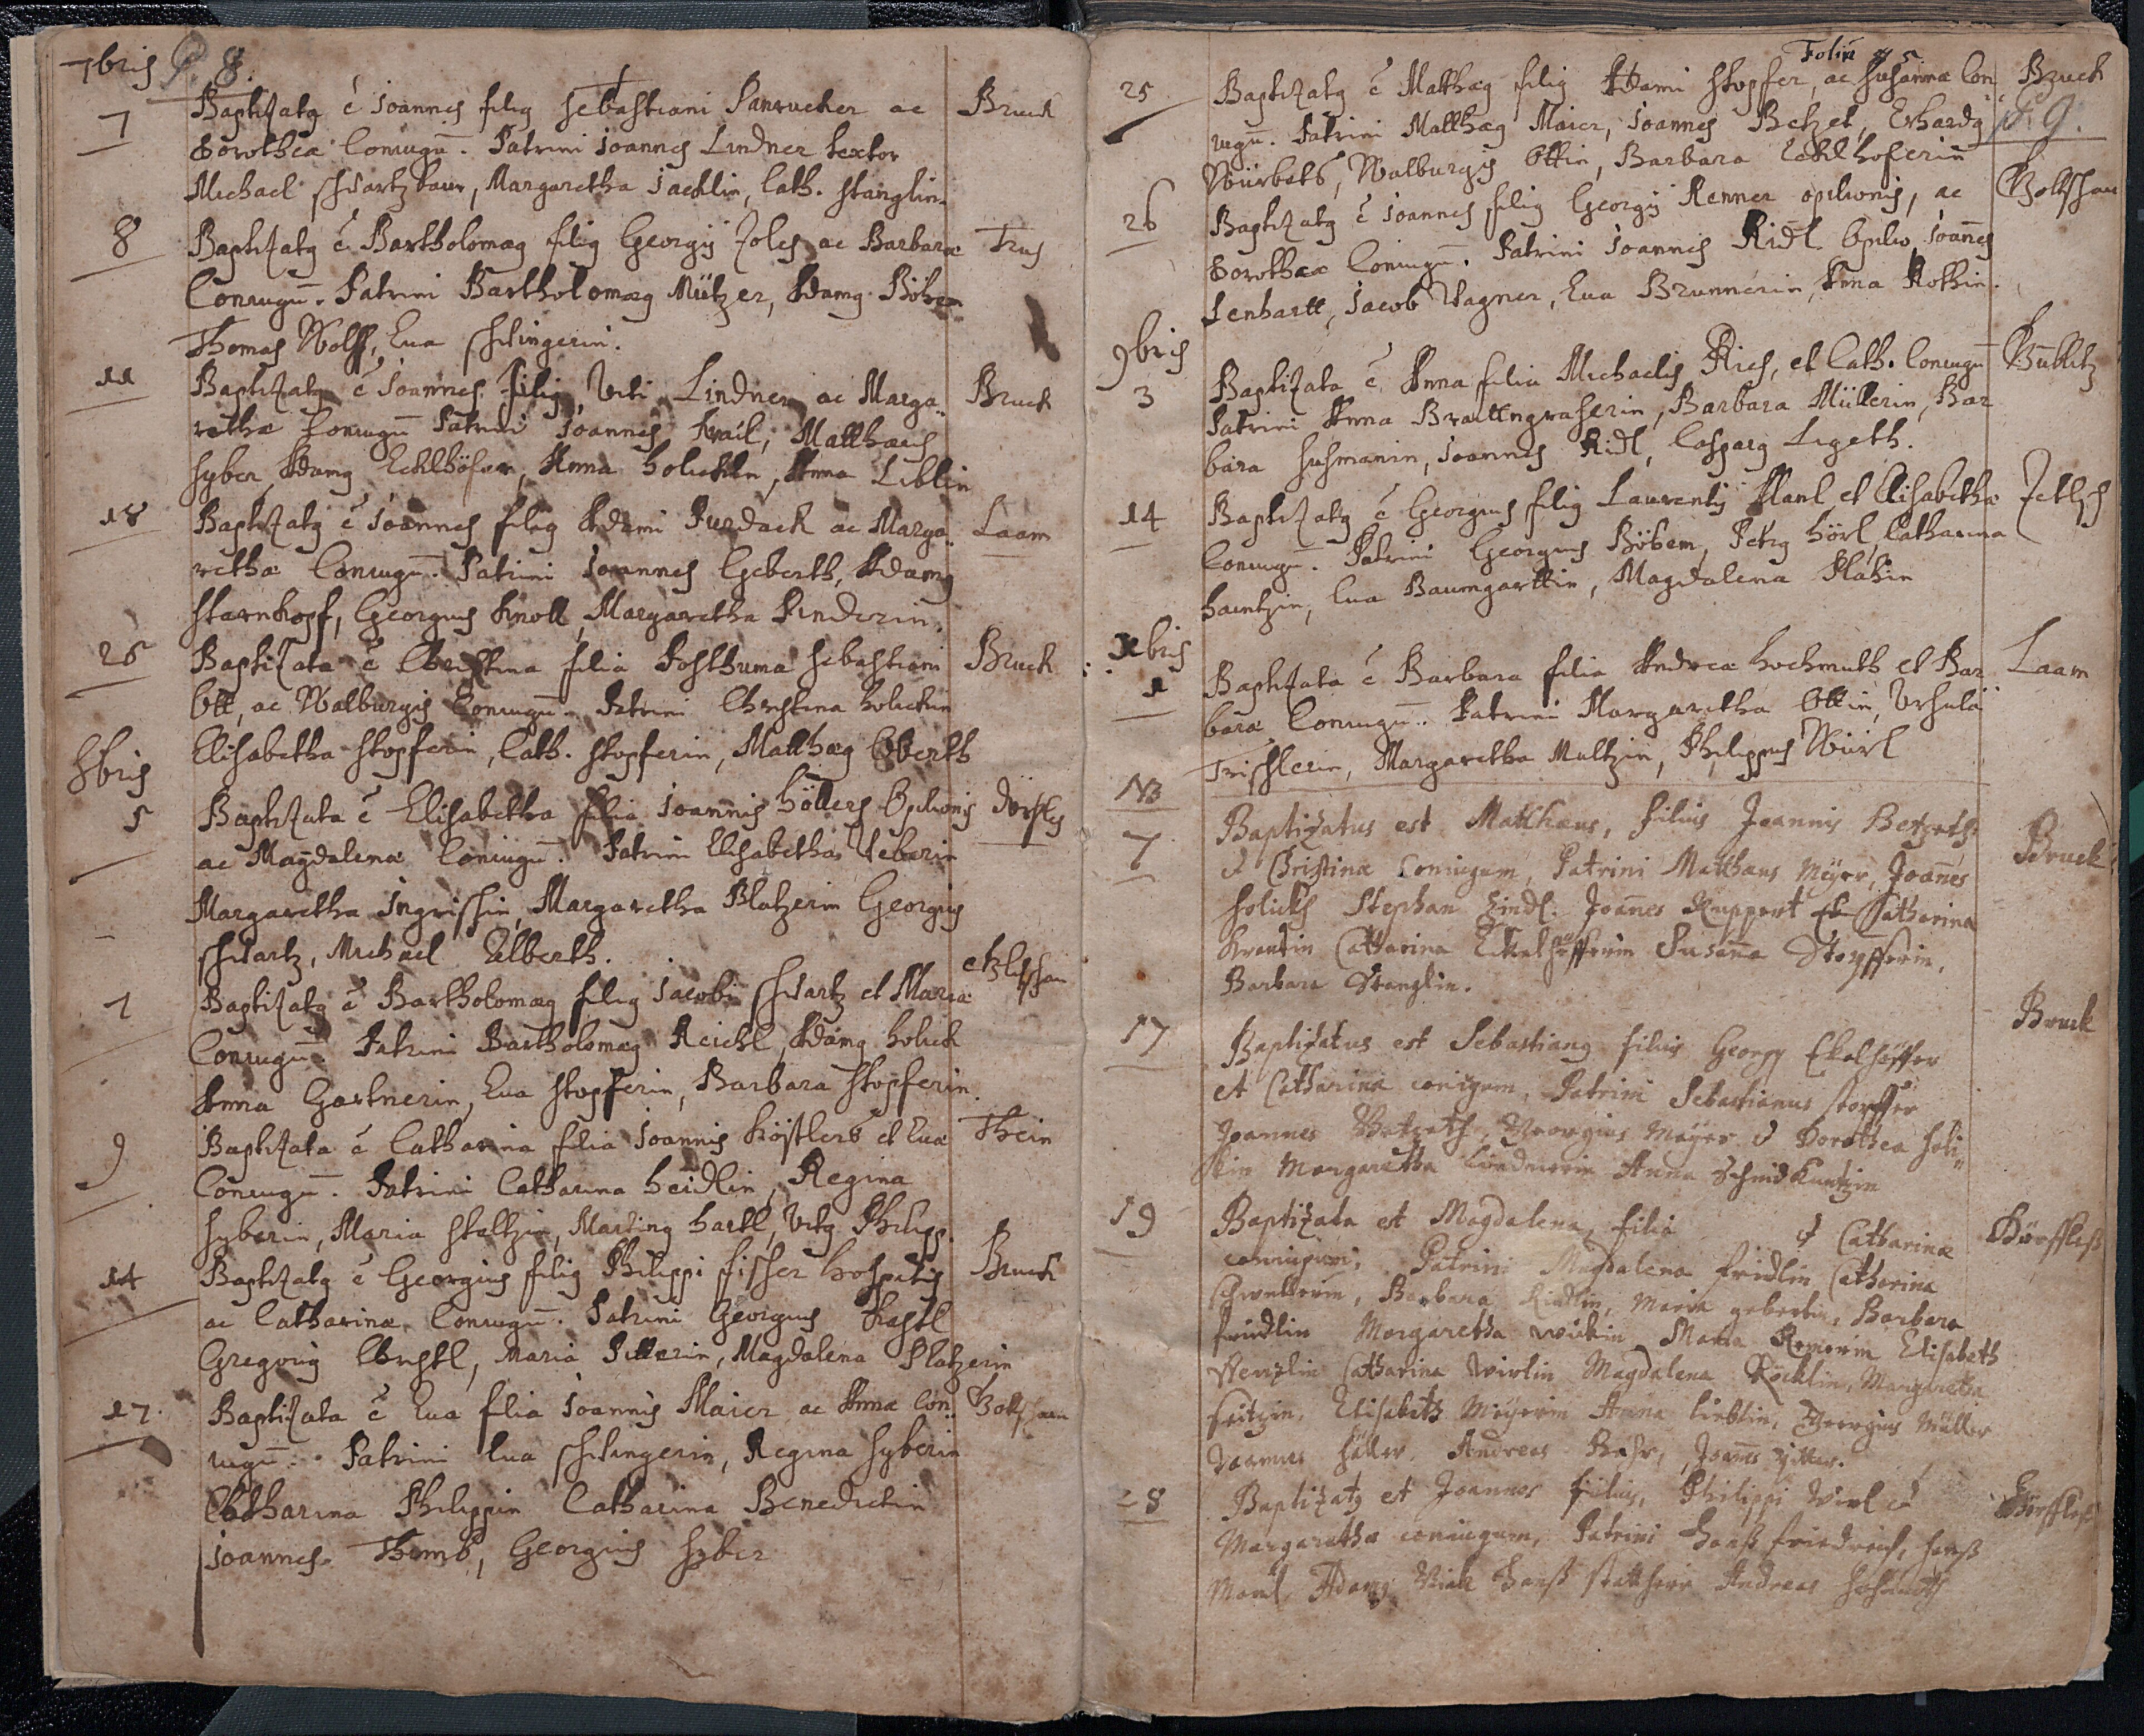 7bris P. 8.
7 Baptizatg ē Joannes filig Sebastiani Panrucker ac Bruck
Dorothea Coniugū. Patrini Joannes Lindner textor
Michael schwartzbaur, Margaretha Jacklin, Cath. Stanglin.
8 Baptizatg ē Bartholomæg filig Georgÿ Zoles ac Barbaræ Trus
Coniugū. Patrini Bartholomæg Mützer, Adamg Böhem
Thomas Wolff, Eva schwingerin.
11 Baptizatg ē Joannes filig Viti Lindner ac Marga- Bruck
rethæ Coniugū Patrini Joannes Krail, Matthæus
Syber, Adamg Ecklhöfer, Anna Holickin, Anna Liblin
18 Baptizatg ē Joannes filig Adami Purdack ac Marga- Laam
rethæ Coniugū. Patrini Joannes Geberth, Adamg
Starnkopf, Georgius Knoll, Margaretha Pinderin.
26 Baptizata ē Christina filia Posthuma Sebastiani Bruck
Ott, ac Walburgis Coniugū. Patrini Christina Holickin
Elisabetha Stopferin, Cath. Stopferin, Matthæg Oberth
8bris
5 Baptizata ē Elisabetha filia Joannis Höllers Opilionis Dörfles
ac Magdalenæ Coniugū. Patrini Elisabetha Weberin
Margaretha Ingrischin, Margaretha Blatzerin Georgius
schwartz, Michael Alberth.
7 Baptizatg ē Bartholomæg filig Jacobi schwartz et Mariæ
Coniugū. Patrini Bartholomæg Reichl, Adamg Holick
Anna Gartnerin, Eva Stopferin, Barbara Stopferin.
9 Baptizata ē Catharina filia Joannis Köstlers et Evæ Thein
Coniugū. Patrini Catharina Heidlin, Regina
Syberin, Maria Steltzin, Marting Hartl, Vitg Philipp.
14 Baptizatg ē Georgius filig Philippi fischer Hospitis Bruck
ac Catharinæ Coniugū. Patrini Georgius Kastl
Gregorig Christl, Maria Pittlerin, Magdalena Platzerin
17. Baptizata ē Eva filia Joannis Maier ac Annæ Con-
iugū. Patrini Eva schwingerin, Regina Syberin
Catharina Philippin Catharina Benedictin
Joannes Thomb, Georgius Syber
Foliū 5
25 Baptizatg ē Matthæg filig Adami Stopfer, ac Susannæ Con- Bruck
iugū. Patrini Matthæg Maier, Joannes Betzet, Erhardg P. 9.
Würbetb, Walburgis Ottin, Barbara Ecklhoferin
26 Baptizatg ē Joannes filig Georgÿ Renner opilionis, ac
Dorotheæ Coniugū. Patrini Joannes Ridl Opilio, Joannes
Lenhartt, Jacob Wagner, Eva Brunnerin, Anna Rothin.
9bris
3 Baptizata ē Anna filia Michaelis Ries, et Cath. Coniugū
Patrini Anna Braittngraserin, Barbara Müllerin, Bar
bara Husmanin, Joannes Ridl, Casparg Ligeth.
14 Baptizatg ē Georgius filig Laurentÿ Planl et Elisabethæ
Coniugū. Patrini Georgius Böhem, Petrg Hörl, Catharina
Haintzin, Eva Baumgarttin, Magdalena Plahin
Xbris
1 Baptizata ē Barbara filia Andreæ Hochmuth et Bar Laam
baræ Coniugū. Patrini Margaretha Ottin, Ursula
Trischlerin, Margaretha Multzin, Philippus Würl
NB
7 Baptizatus est Matthæus, filius Joannis Betzeth Bruck
& Christinæ Coniugum, Patrini Matthæus Meÿer, Joanes
Holickh Stephan Zindl. Joanes Ruppert Et Catharina
Catharina Eckelhöfferin Susanna Stopfferin,
Barbara Stanglin.
17 Baptizatus est Sebastiang filius Georgÿ Ekelhöffer Bruck
et Catharinæ coniugum, Patrini Sebastianus stopffer
Joannes Betzeth, Georgius Meÿer & Dorothea Holi-
kin Margaretha Lindnerin Anna Schmidkuntzin
19 Baptizata est Magdalena, filia & Catharinæ Dörffless
coniugum, Patrini Magdalena fridlin, Catharina
Barbara Riedlin, Maria geberthin, Barbara
friedlin Margaretha Maria Renerin Elisabeth
Catharina Wirlin Magdalena Röcklin, Margaretha
fritzin, Elisabeth Meÿerin Anna lieblin, Georgius Müller
Joannes Höller, Andreas Joannes
28 Baptizatg est Joannes filius, Philippi Wirl & Dörffless
Margarethæ coniugum, Patrini Hanß friedrich, Hanß
Adamg Hanß Andreas Hochmuth